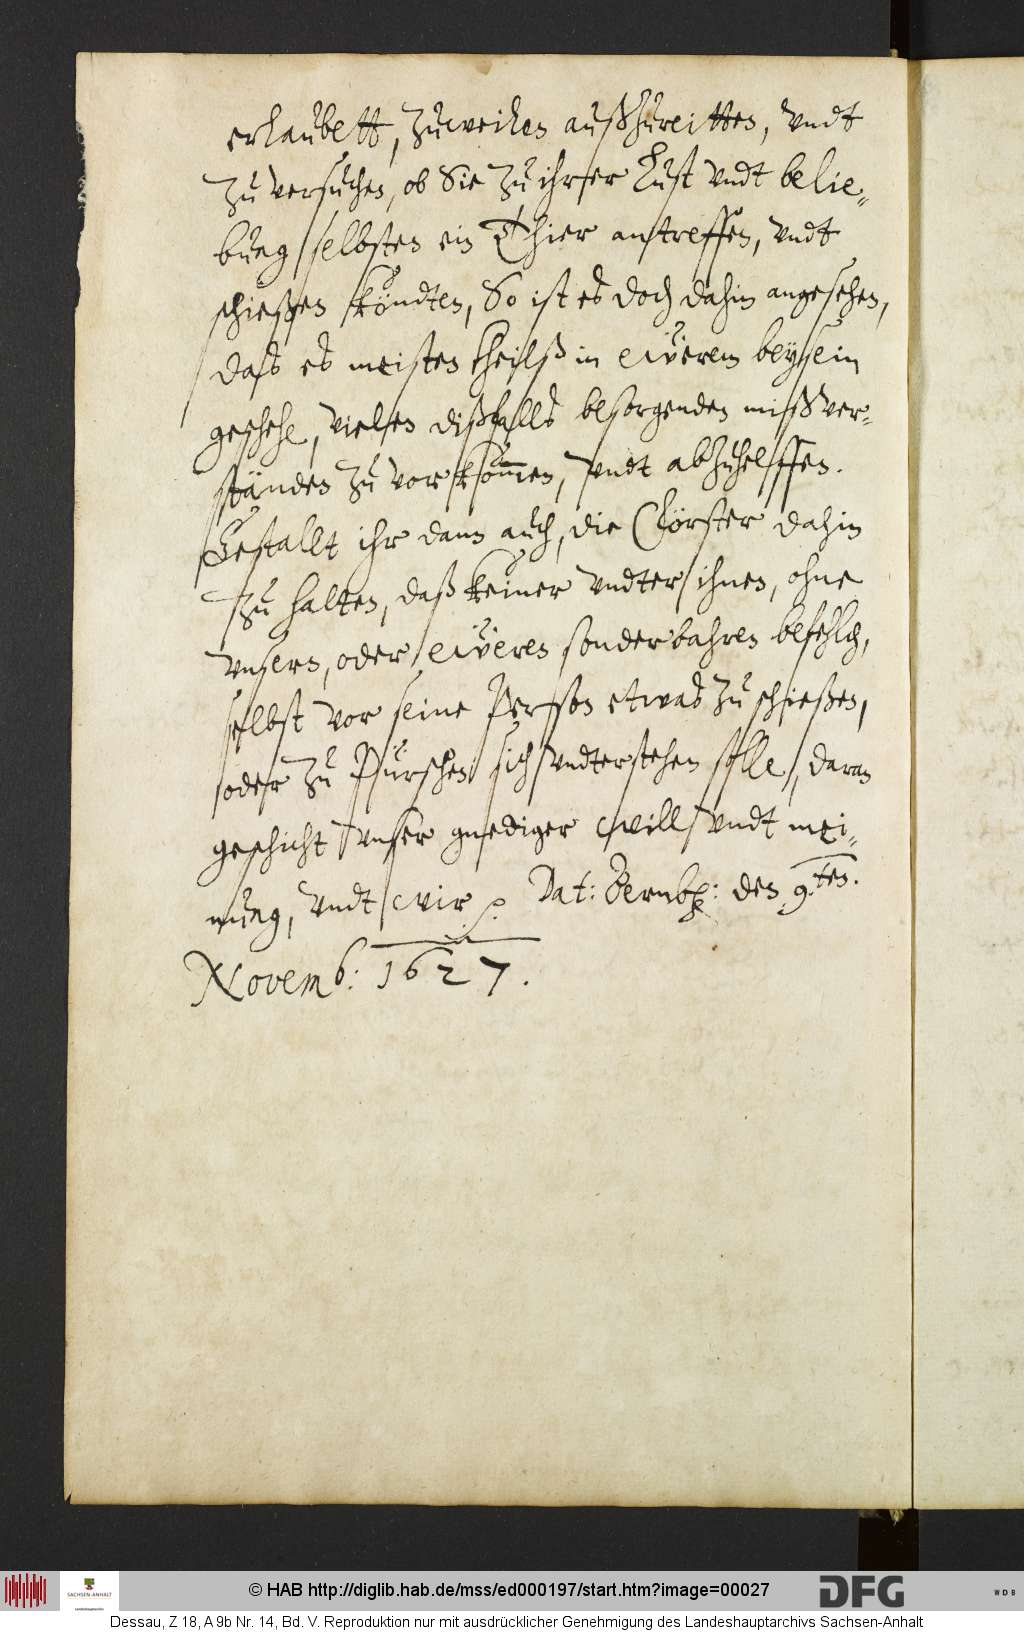 erlaubett, zuweilen außzureitten, vndt
zu versuchen, ob Sie zu ihrer Lust vndt belie-
bung selbsten ein Thier antreffen, vndt
schießen köndten, So ist es doch dahin angesehen,
dass es meisten theilß in ewerem beysein
geschehe, vielen dißfalls besorgenden mißver-
ständen zu vorkommen, vndt abzuhelffen.
Gestallt ihr dann auch, die Förster dahin
zu halten, daß keiner vndter ihnen, ohne
vnsern, oder eweren sonderbahren befehlch,
selbst vor seine Person etwas zu schießen,
oder zu Pürschen sich vndterstehen solle, daran
geschicht vnser gnediger will vndt mei-
nung, vndt wir p. Dat: Bernb: den 9.ten.
Novemb: 1627.
SACHSEN-ANHALT
© HAB http://diglib.hab.de/mss/ed000197/start.htm?image=00027
DFG
WDB
Dessau, Z 18, A 9b Nr. 14, Bd. V. Reproduktion nur mit ausdrücklicher Genehmigung des Landeshauptarchivs Sachsen-Anhalt